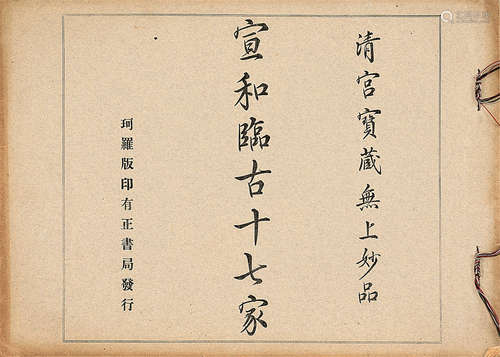 清宮寶蔵無上妙品
宣和臨古十七家
珂羅版印有正書局發行